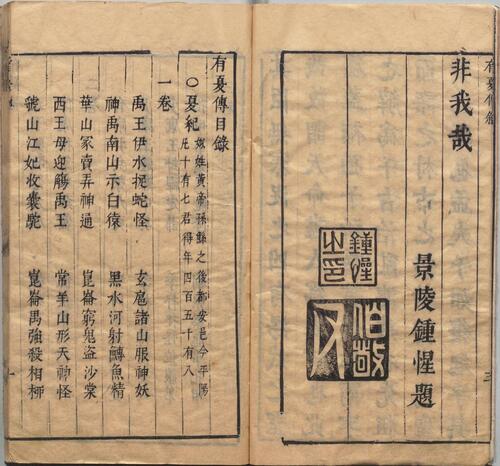 有夏傳敘
非我哉
景陵鍾惺題
鍾惺之印
伯敬
三
有夏傳目錄
○夏紀
姒姓黃帝孫鯀之後都安邑今平陽
凡十有七君得年四百五十有八
一卷
禹王伊水捉蛇怪 玄扈諸山服神妖
神禹南山示白猿 黑水河射鱄魚精
華山冢賣弄神通 崑崙窮鬼盜沙棠
西王母迎觴禹王 常羊山形天神怪
號山江妃收橐駝 崑崙禺強殺相栁
一